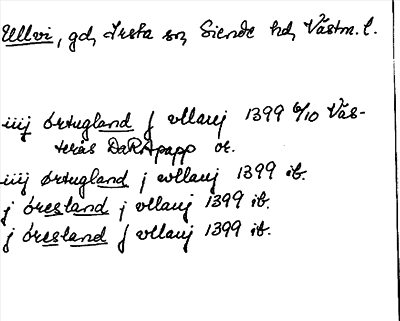 Ullvi, gd, Irsta sn, Siende hd, Västm. l.
iiij örtugland j vllauj 1399 6/10 Väs-
terås DaRApapp or.
iiij örtugland j wllauj 1399 ib.
j öresland j vllauj 1399 ib.
j öresland j vllauj 1399 ib.